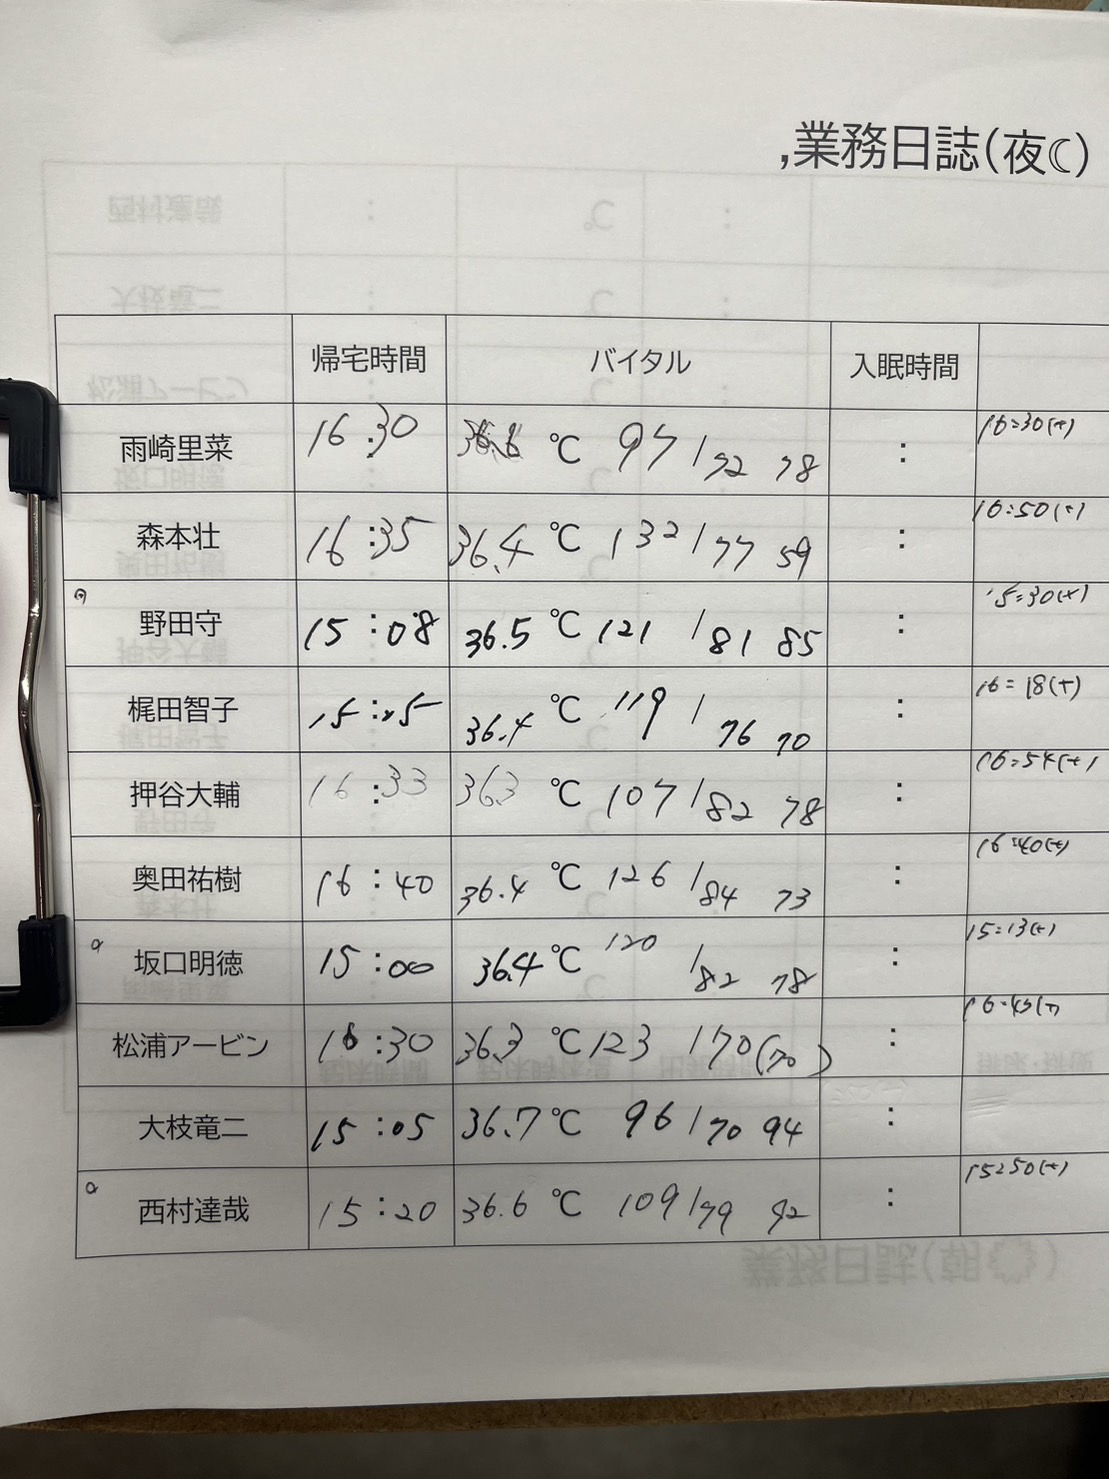 ,業務日誌(夜☾)
帰宅時間 バイタル 入眠時間
雨崎里菜 16:30 36.6 ℃ 97/72 78 : 16:30(+)
森本壮 16:35 36.4 ℃ 132/77 59 : 16:50(+)
野田守 15:08 36.5 ℃ 121/81 85 : 15:30(+)
梶田智子 15: ℃ 36.4 119/76 70 : 16:18(+)
押谷大輔 16:33 363 ℃ 107/82 78 : 16:54(+)
奥田祐樹 16:40 36.4 ℃ 126/84 73 : 16:40(+)
坂口明徳 15:00 36.4 ℃ 120/82 78 : 15:13(+)
松浦アービン 16:30 36.3 ℃ 123/70(70) : 16:45(+)
大枝竜二 15:05 36.7 ℃ 96/70 94 :
西村達哉 15:20 36.6 ℃ 109/79 92 : 15:50(+)